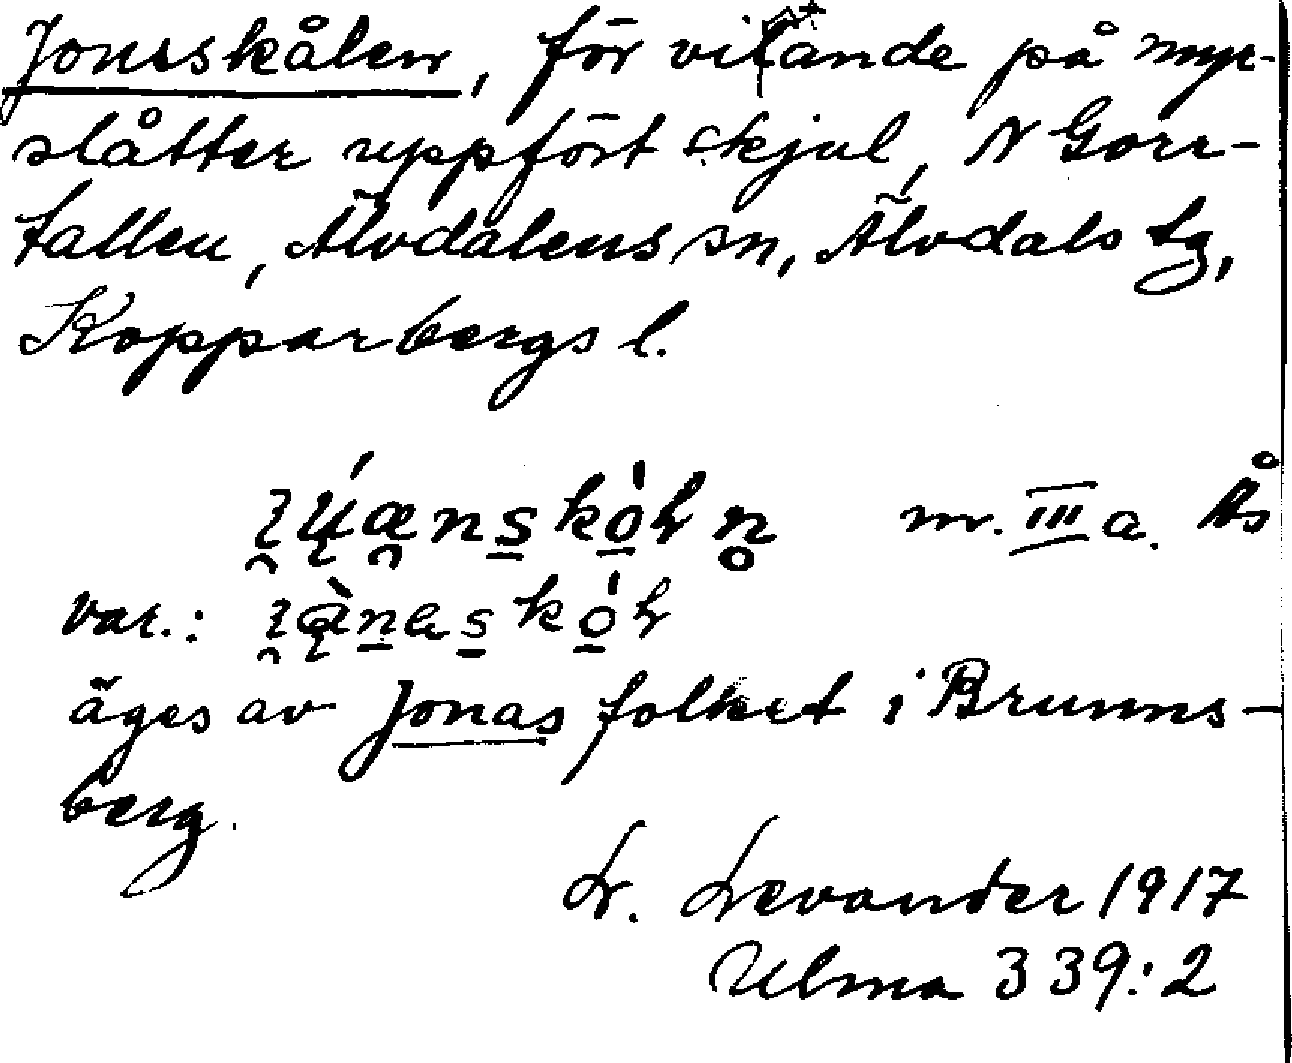 Jonsskålen, för vilande på myr-
slåtter uppfört skjul, N Gorr-
tallen, Älvdalens sn, Älvdals tg,
Kopparbergs l.
m. III a. Ås
var.:
äges av Jonas folket i Brunns-
berg.
L. Levander 1917
Ulma 339:2